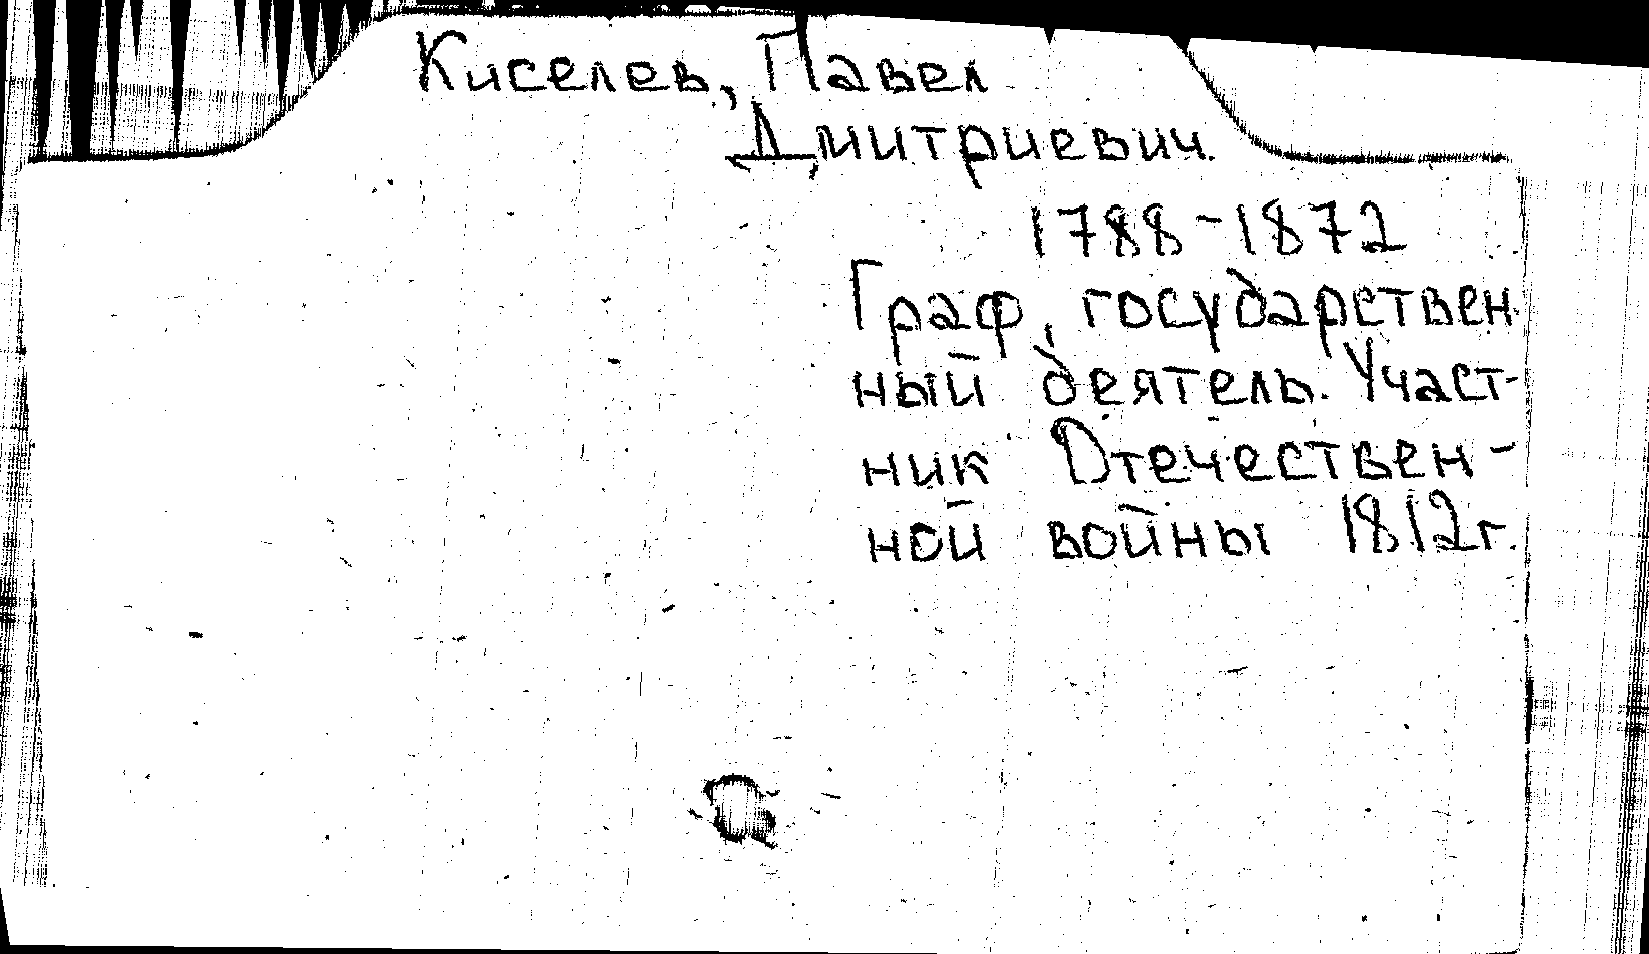 Киселев, Павел
Дмитриевич.
1788-1872
Граф, государствен
ный деятель. Участ-
ник Отечествен-
ной войны 1812г.